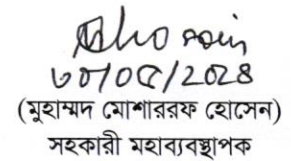 ৩০/০৫/২০২৪
(মুহাম্মদ মোশাররফ হোসেন)
সহকারী মহাব্যবস্থাপক